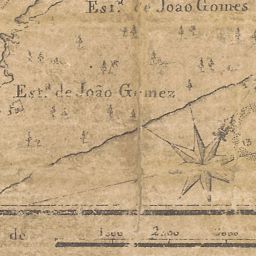 Est.ª de João Gomes
Est.ª de João Gomez
13
de 1000 2000 3000